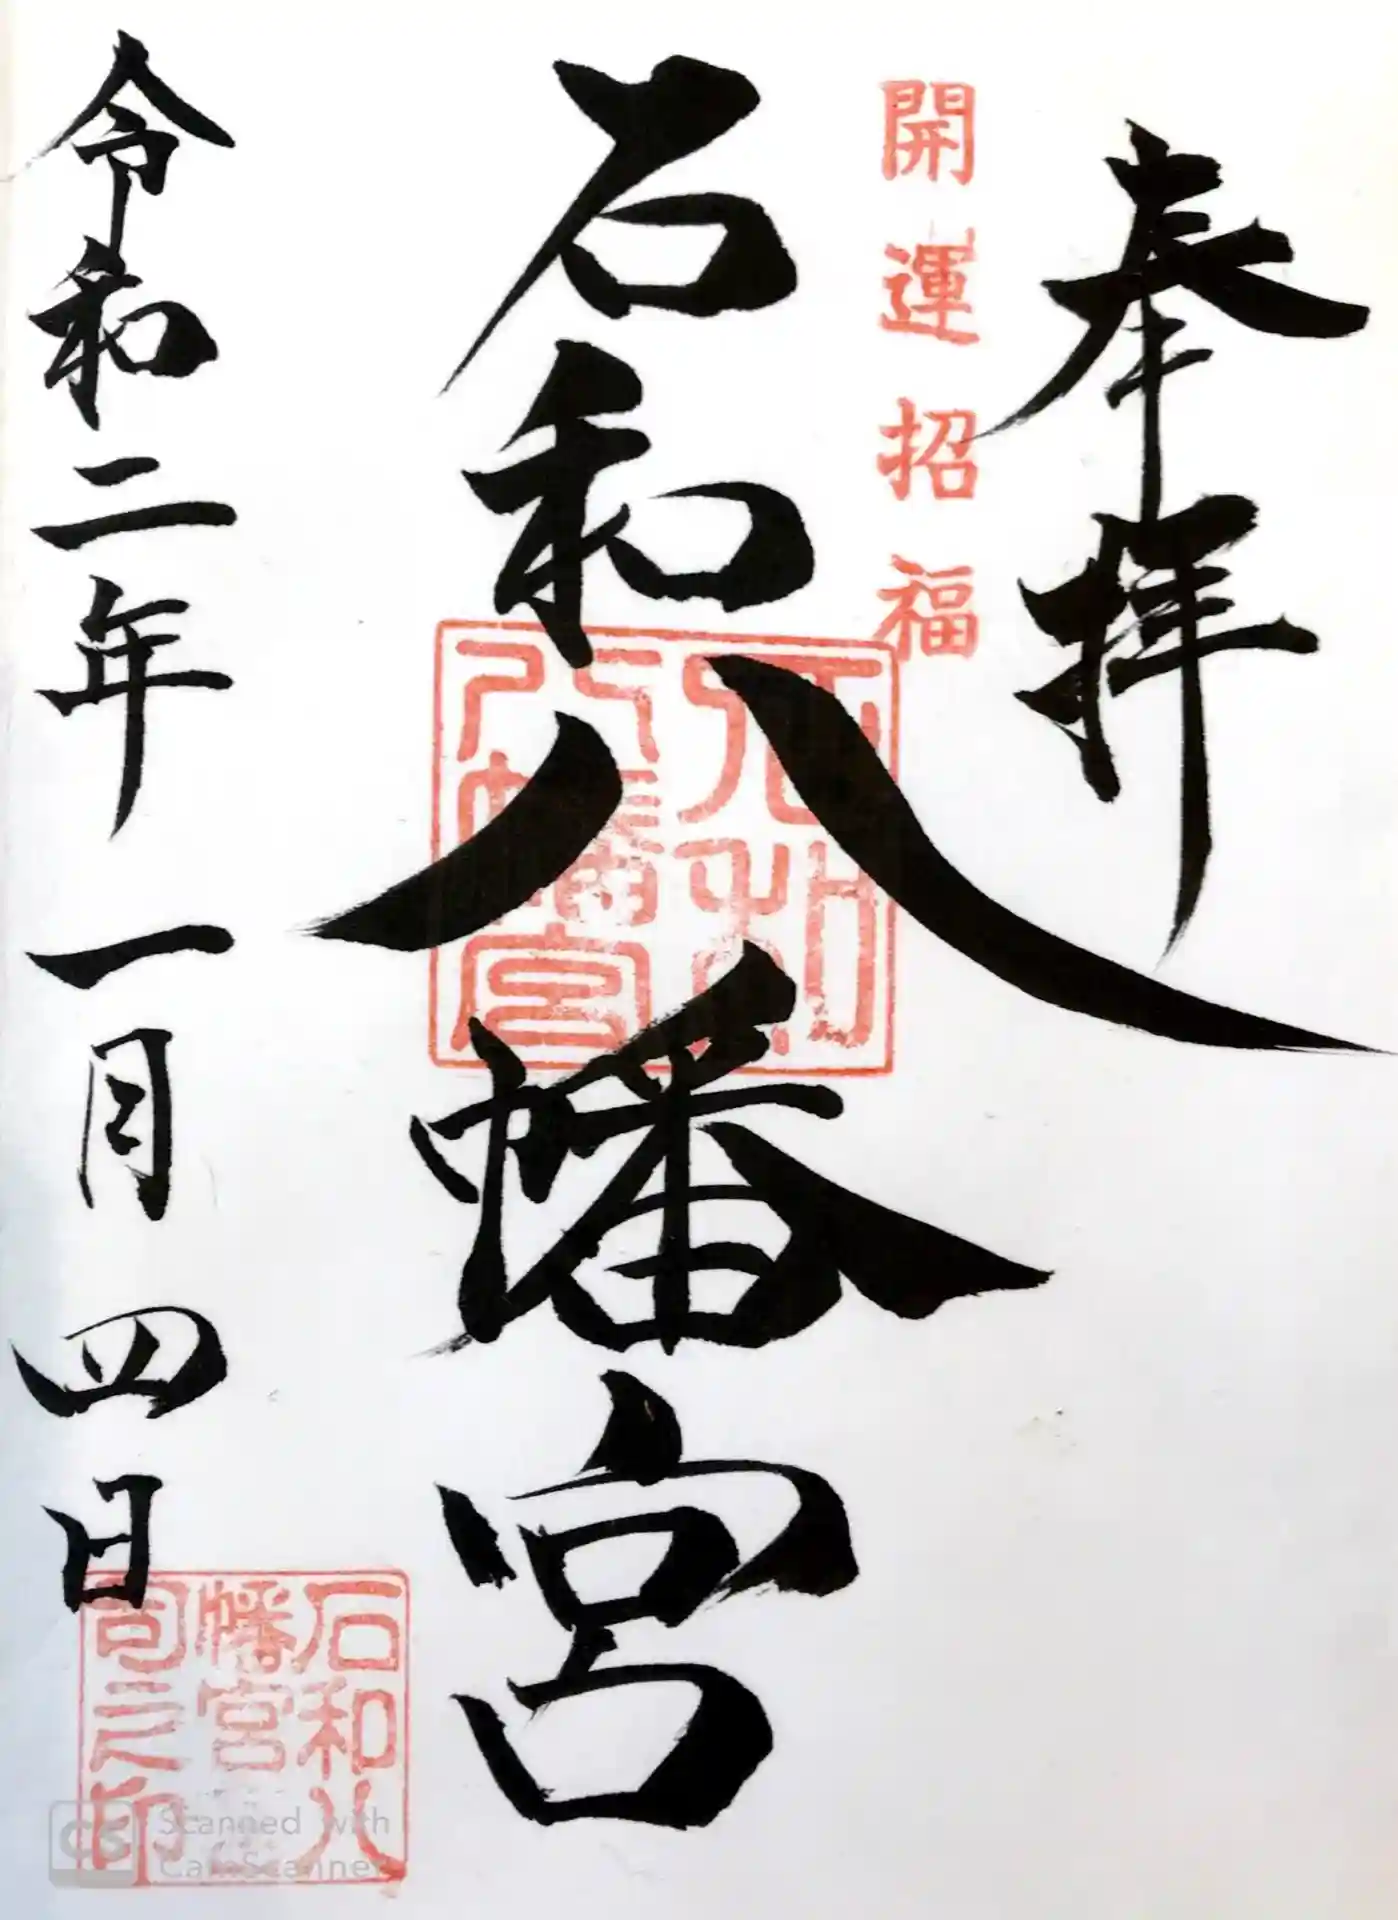 奉拝
開運招福
石和八幡宮
石和
八幡宮
令和二年 一月四日
石和八
幡宮
司之印
CS
Scanned with
CamScanner